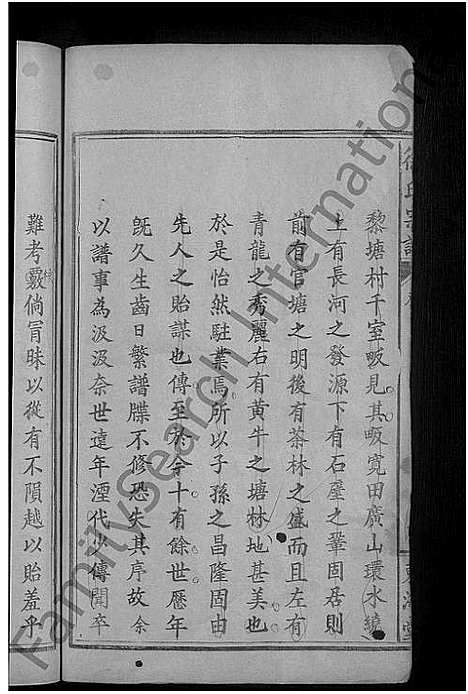 黎塘村千室畈見其畈寬田廣山環水繞
上有長河之發源下有石壁之鞏固居則
前有官塘之明後有茶林之盛而且左有
青龍之秀麗右有黃牛之塘林地甚美也
於是怡然駐業焉所以子孫之昌隆固由
先人之貽謀也傳至於今十有餘世歷年
既久生齒日繁譜牒不修恐失其序故余
以譜事為汲汲奈世遠年湮代少傳聞卒
難考覈倘冒昧以從有不隕越以貽羞乎
FamilySearch International